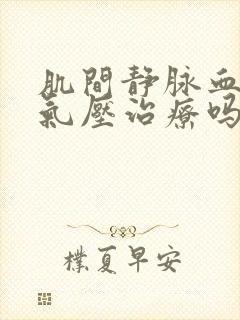 肌間静脉血
氣壓治療吗
樸夏早安